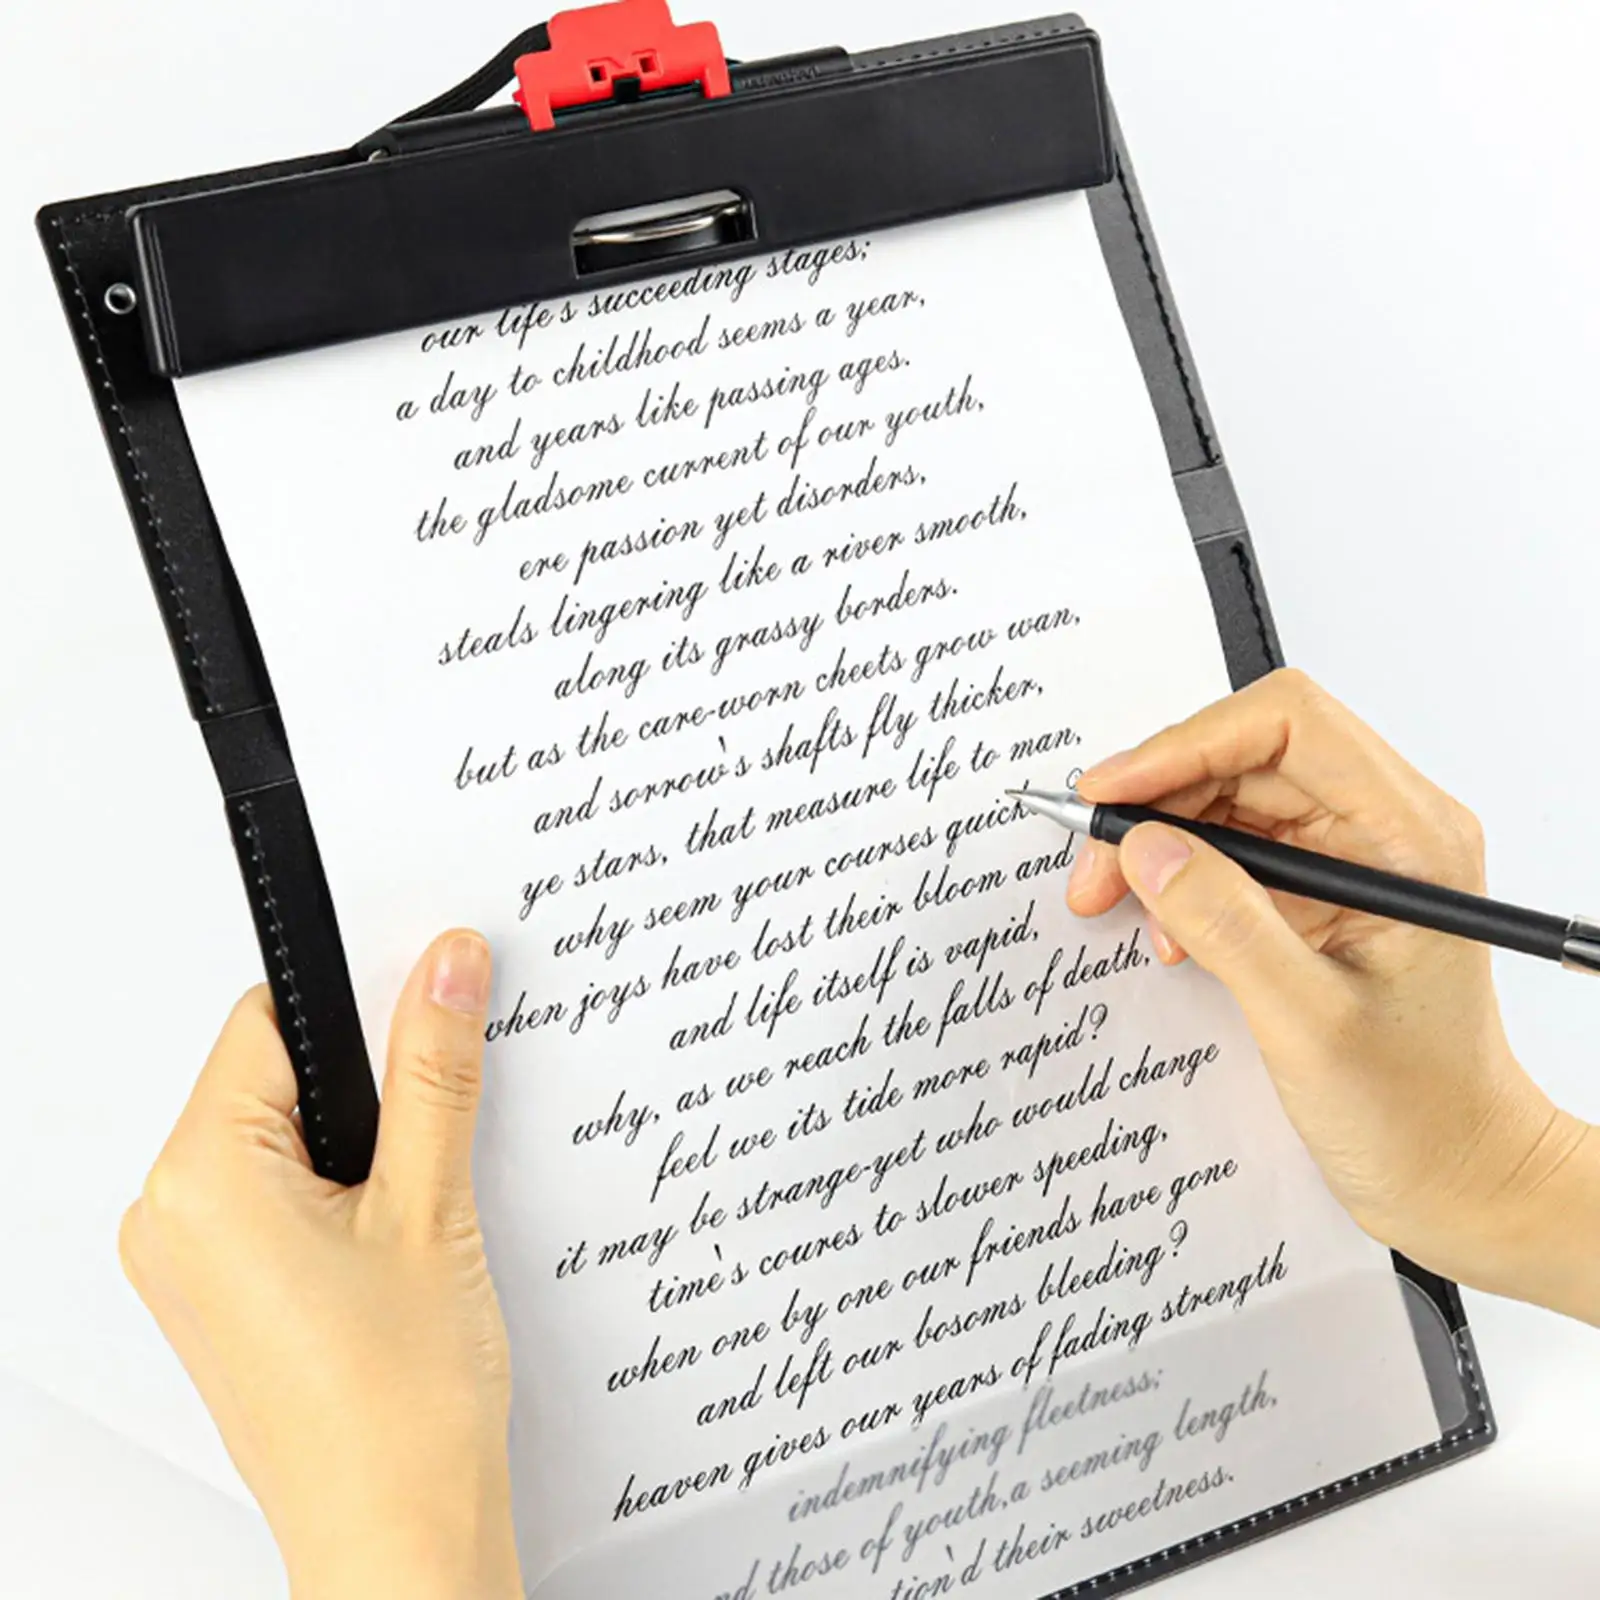 our life's succeeding stages;
a day to childhood seems a year,
and years like passing ages.
the gladsome current of our youth,
ere passion yet disorders,
steals lingering like a river smooth,
along its grassy borders.
but as the care-worn cheets grow wan,
and sorrow's shafts fly thicker,
ye stars, that measure life to man,
why seem your courses quick
when joys have lost their bloom and
and life itself is vapid,
why, as we reach the falls of death,
feel we its tide more rapid?
it may be strange-yet who would change
time's coures to slower speeding,
when one by one our friends have gone
and left our bosoms bleeding?
heaven gives our years of fading strength
indemnifying fleetness;
those of youth, a seeming length,
tion'd their sweetness.